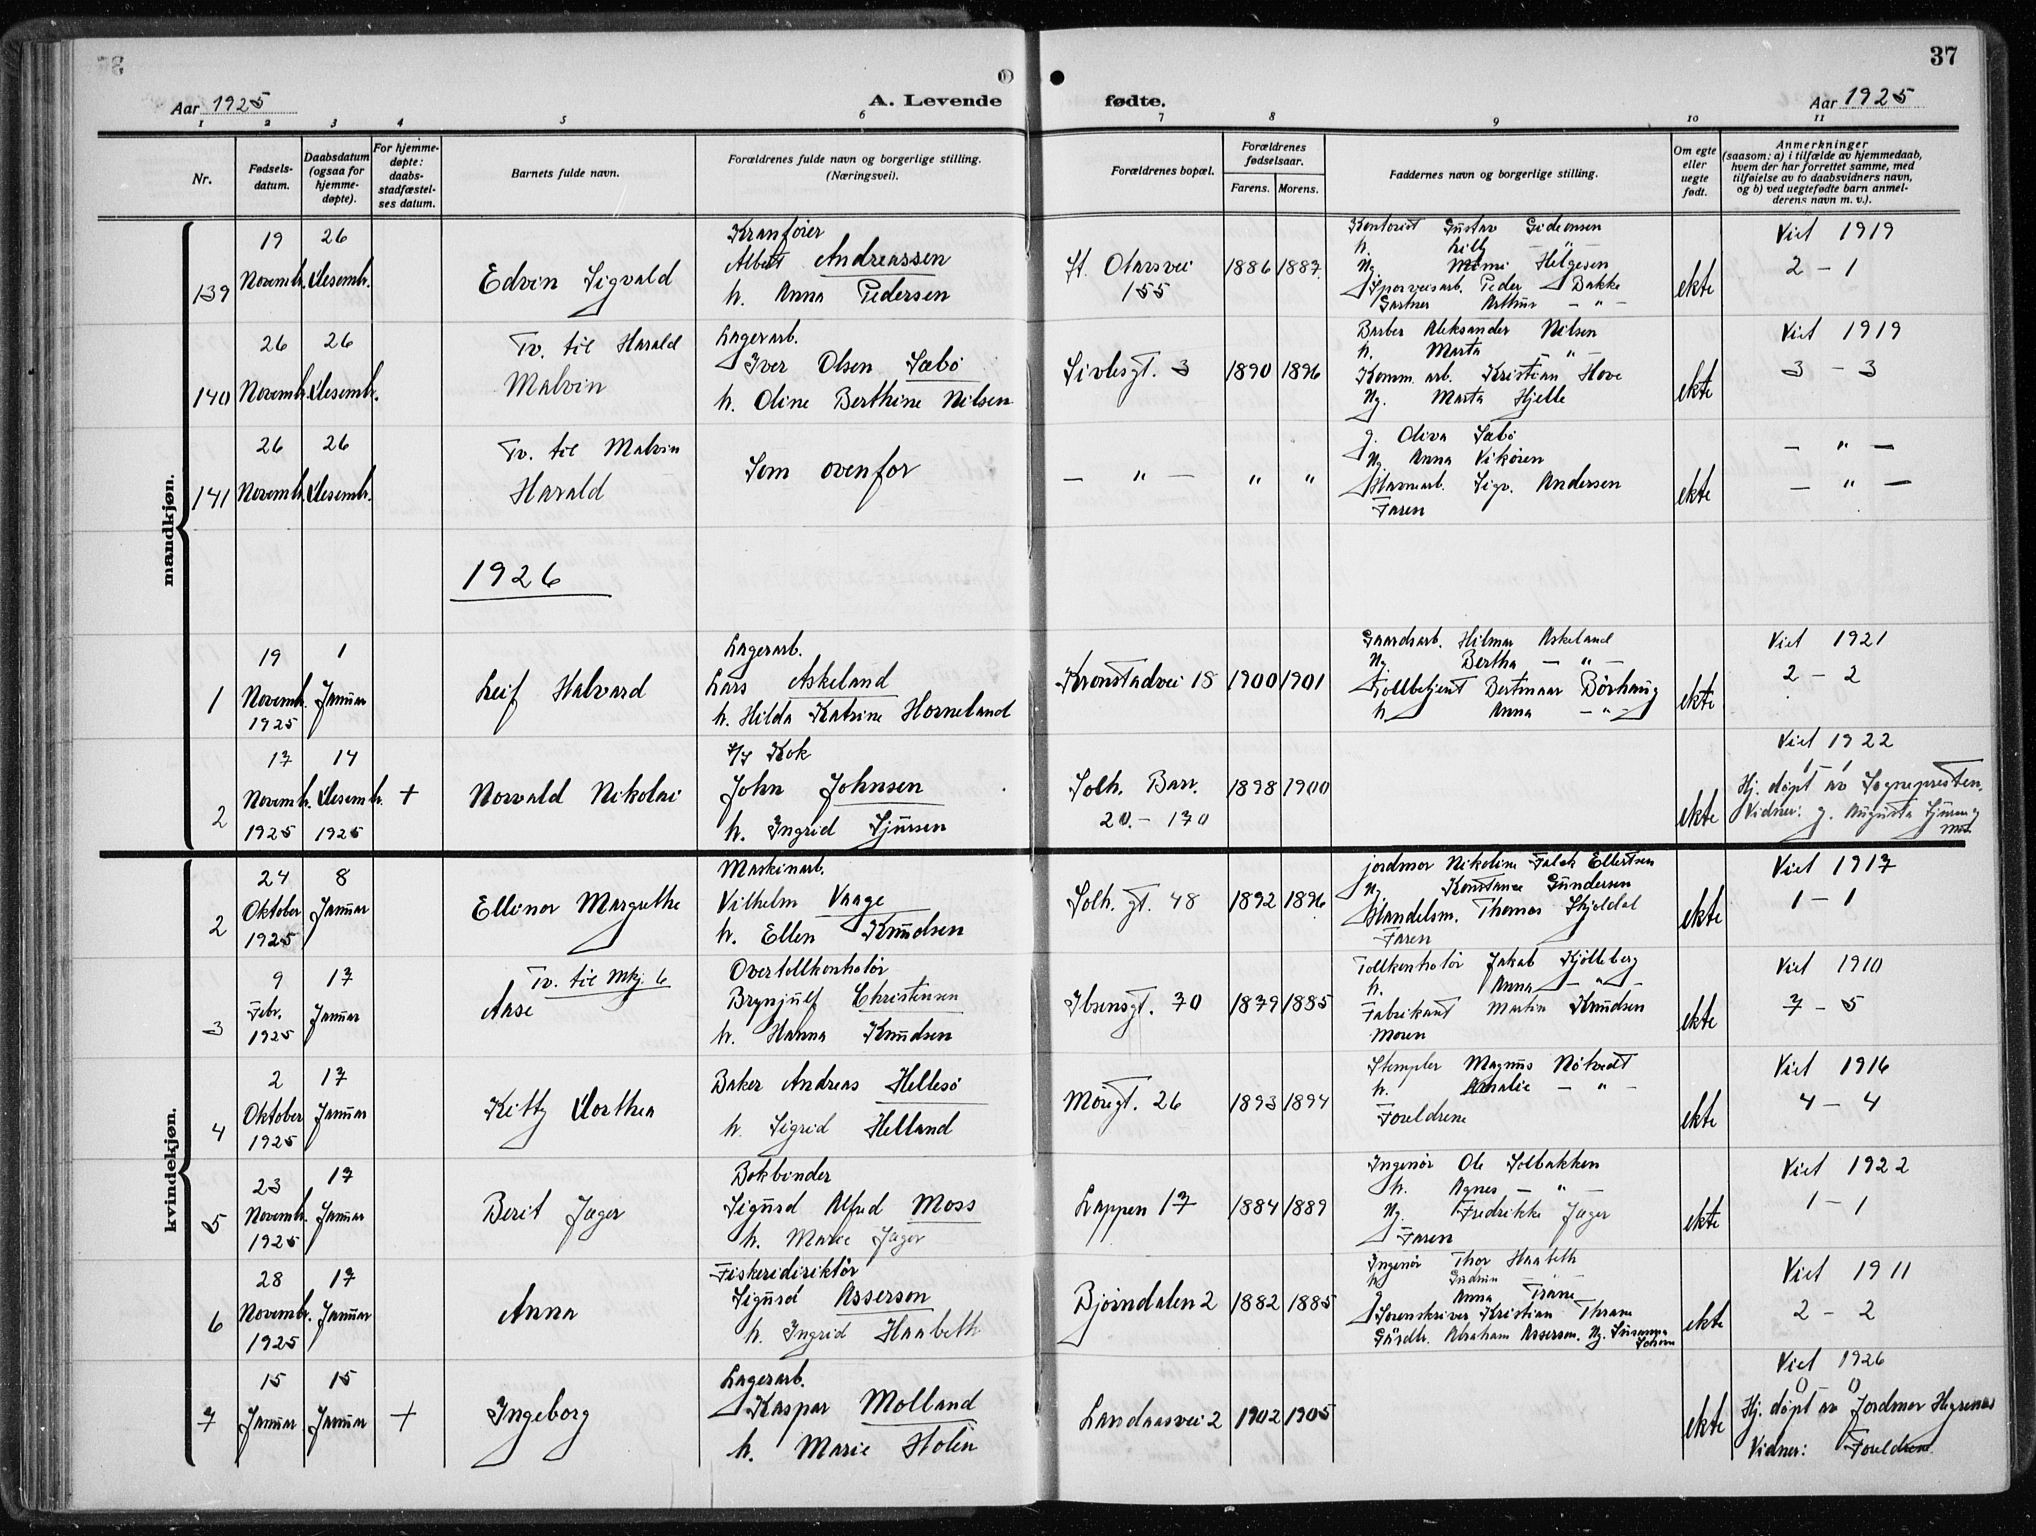 37
Aar 1925
A. Levende
fødte.
Aar 1925
1 2 3 4 5 6 7 8 9 10 11
Nr.
Fødsels-
datum.
Daabsdatum
(ogsaa for
hjemme-
døpte).
For hjemme-
døpte:
daabs-
stadfæstel-
ses datum.
Barnets fulde navn.
Forældrenes fulde navn og borgerlige stilling.
(Næringsvei).
Forældrenes bopæl.
Forældrenes
fødselsaar.
Farens. Morens.
Faddernes navn og borgerlige stilling.
Om egte
eller
uegte
født.
Anmerkninger
(saasom: a) i tilfælde av hjemmedaab,
hvem der har forrettet samme, med
tilføielse av to daabsvidners navn,
og b) ved uegtefødte barn anmel-
derens navn m. v.).
mandkjøn.
139
19
Novembr.
26
Desembr.
Edvin Sigvald
Kranfører
Albert Andreassen
h. Anna Pedersen
St. Olavsvei
155
1886 1887
Kontorist Gustav Gideonsen
h. Lilly — " —
Ng. Mimi Helgesen
Sporveisarb. Peder Bakke
Gartner Arthur — " —
ekte
Viet 1919
2 – 1
140
26
Novembr.
26
Desembr.
Tv. til Harald
Malvin
Lagerarb.
Iver Olsen Sæbö
h. Oline Berthine Nilsen
Sivlesgt. 3
1890 1896
Barber Aleksander Nilsen
h. Marta — " —
Komm. arb. Kristian Hove
Ng. Marta Hjelle
ekte
Viet 1919
3 – 3
141
26
Novembr.
26
Desembr.
Tv. til Malvin
Harald
Som ovenfor
— " —
" "
g. Oliva Sæbö
Ng. Anna Vikören
Havnearb. Sigv. Andersen
Faren
ekte
— " —
— " —
1926
1
19
Novembr.
1925
1
Januar
Leif Halvard
Lagerarb.
Lars Askeland
h. Hilda Katrine Horneland
Kronstadvei 18
1900 1901
Gaardsarb. Hilmar Askeland
Ng. Bertha — " —
Tollbetjent Bertinaar Börhaug
h. Anna — " —
ekte
Viet 1921
2 – 2
2
17
Novembr.
1925
14
Desembr.
1925
+
Norvald Nikolai
Kok
John Johnsen
h. Ingrid Sjursen
Solh. Barr.
20. – 170
1898 1900
ekte
Viet 1922
1 1
Hj. döpt av Sognepresten.
Vidner: g. Augusta
kvindekjøn.
2
24
Oktober
1925
8
Januar
Ellinor Margrethe
Maskinarb.
Vilhelm Vaage
h. Ellen Knudsen
Solh. gt. 48
1892 1896
jordmor Nikoline Falck Ellertsen
Ng. Konstanse Gundersen
Handelsm. Thomas Skjoldal
Faren
ekte
Viet 1917
1 – 1
3
9
Febr.
1925
17
Januar
Tv. til Mkj. 6
Aase
Overtollkontrolør
Brynjulf Christensen
h. Hanna Knudsen
Ibsensgt. 70
1879 1885
Tollkontrolør Jakob Kjölleberg
h. Anna — " —
Fabrikant Martin Knudsen
Moren
ekte
Viet 1910
7 – 5
4
2
Oktober
1925
17
Januar
Kitty Dorthea
Baker Andreas Hellesö
h. Sigrid Helland
Möregt. 26
1893 1894
Stempler Magnus Nötvedt
h. Amalie — " —
Foreldrene
ekte
Viet 1916
4 – 4
5
23
Novembr.
1925
17
Januar
Berit Jæger
Bokbinder
Sigurd Alfred Moss
h. Marie Jæger
Lappen 17
1884 1889
Ingeniør Ole Solbakken
h. Agnes — " —
Ng. Fredrikke Jæger
Faren
ekte
Viet 1922
1 – 1
6
28
Novembr.
1925
17
Januar
Anna
Fiskeridirektör
Sigurd Asserson
h. Ingrid Haabeth
Bjørndalen 2
1882 1885
Ingeniør Thor Haabeth
h. Gudrun
g. Anna Trane
Sorenskriver Kristian Thrane
Gårdbr. Abraham Asserson. Ng. Susanna
ekte
Viet 1911
2 – 2
7
15
Januar
15
Januar
+
Ingeborg
Lagerarb.
Kaspar Molland
h. Marie Holen
Landaasvei 2
1902 1905
ekte
Viet 1926
0 0
Hj. döpt av Jordmor
Vidner: Foreldrene